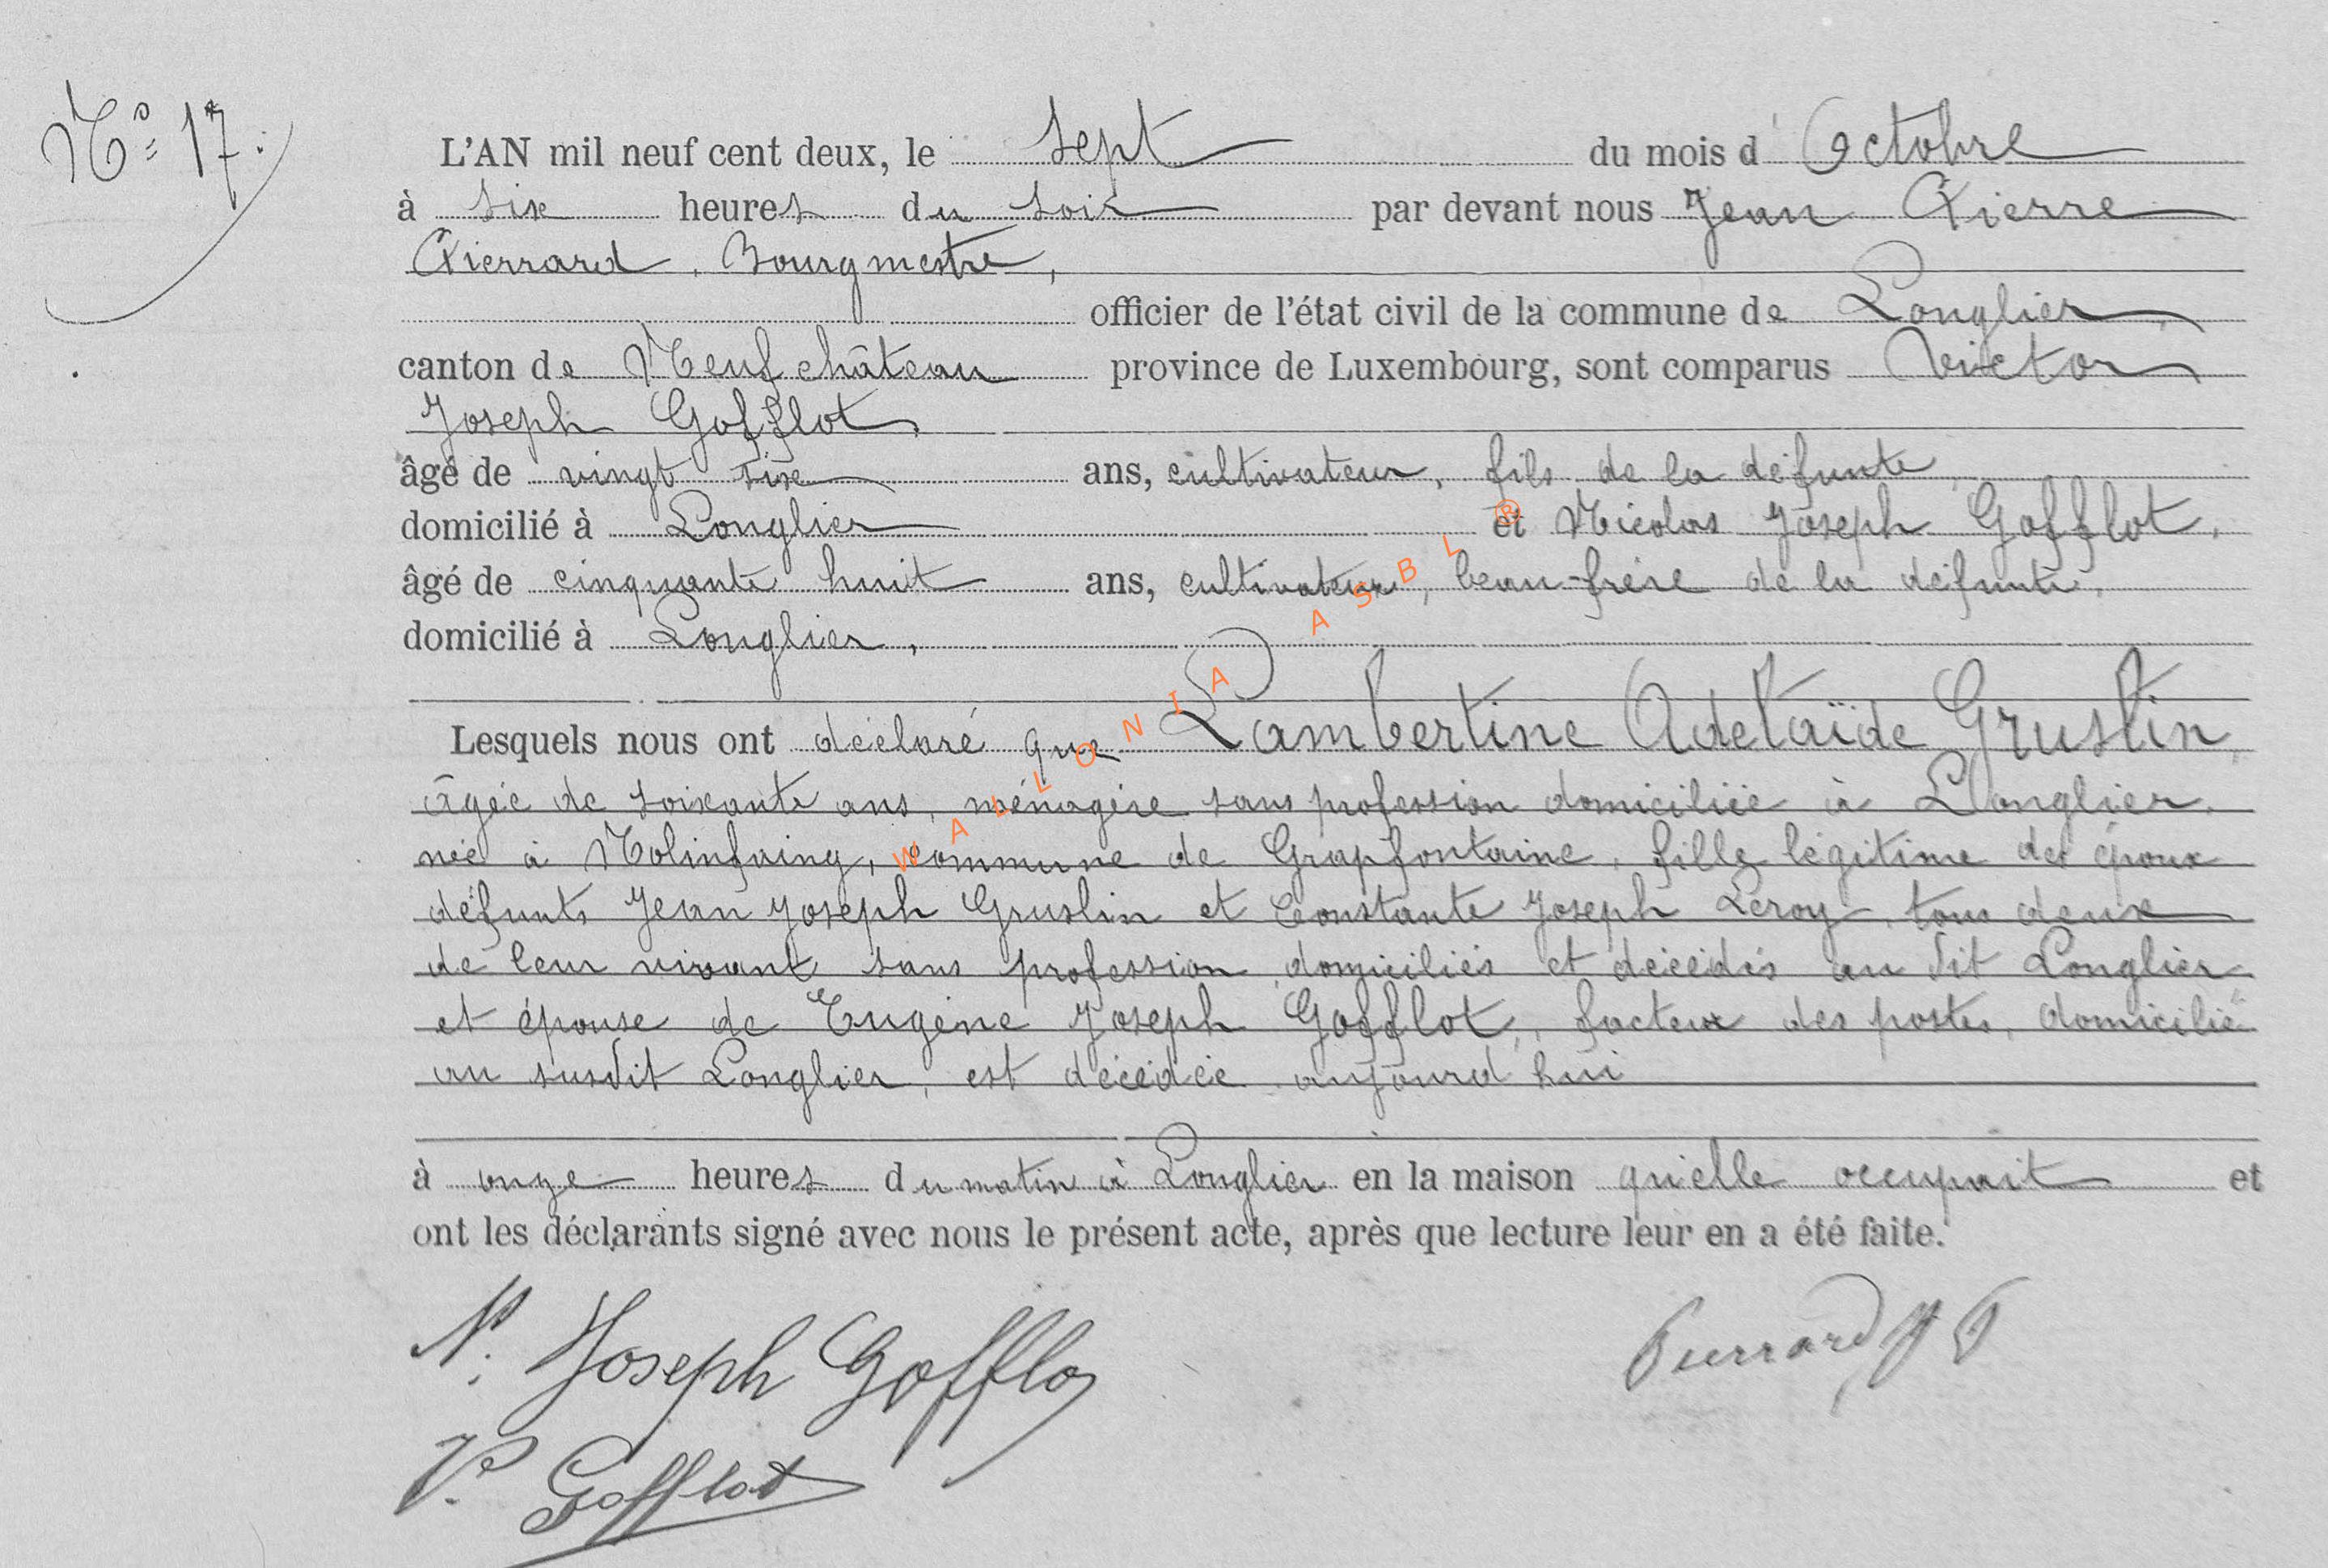 N° 17.
L'AN mil neuf cent deux, le sept du mois d'Octobre
à six heures du soir par devant nous Jean Pierre
Pierrard, Bourgmestre,
officier de l'état civil de la commune de Longlier,
canton de Neufchâteau province de Luxembourg, sont comparus Victor
Joseph Gofflot,
âgé de vingt six ans, cultivateur, fils de la défunte,
domicilié à Longlier et Nicolas Joseph Gofflot,
âgé de cinquante huit ans, cultivateur, beau-frère de la défunte,
domicilié à Longlier,
Lesquels nous ont déclaré que Lambertine Adelaïde Gruslin,
âgée de soixante ans, ménagère sans profession domiciliée à Longlier,
née à Molinfaing, commune de Grapfontaine, fille légitime des époux
défunts Jean Joseph Gruslin et Constante Joseph Leroy, tous deux
de leur vivant sans profession domiciliés et décédés au dit Longlier
et épouse de Eugène Joseph Gofflot, facteur des postes, domicilié
au susdit Longlier, est décédée aujourd'hui
à onze heures du matin à Longlier en la maison qu'elle occupait et
ont les déclarants signé avec nous le présent acte, après que lecture leur en a été faite.
N. Joseph Gofflot Pierrard JP
V. Gofflot
WALLONIA ASBL ®